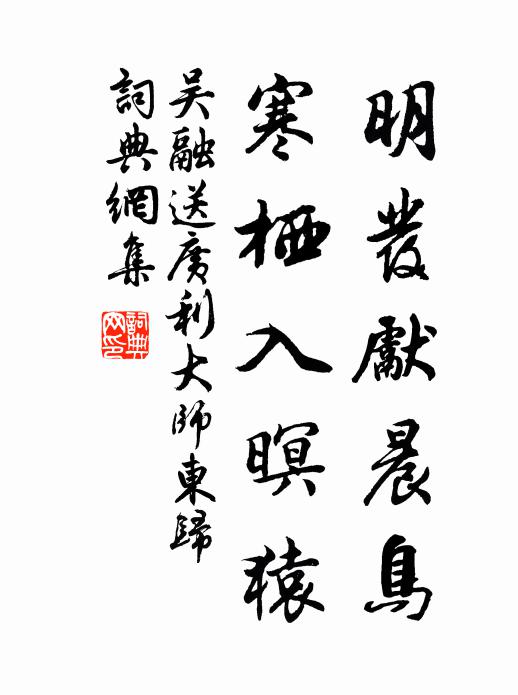 明發獻晨鳥
寒栖入暝猿
吴融送廣利大師東歸
詞典網集
詞典網印